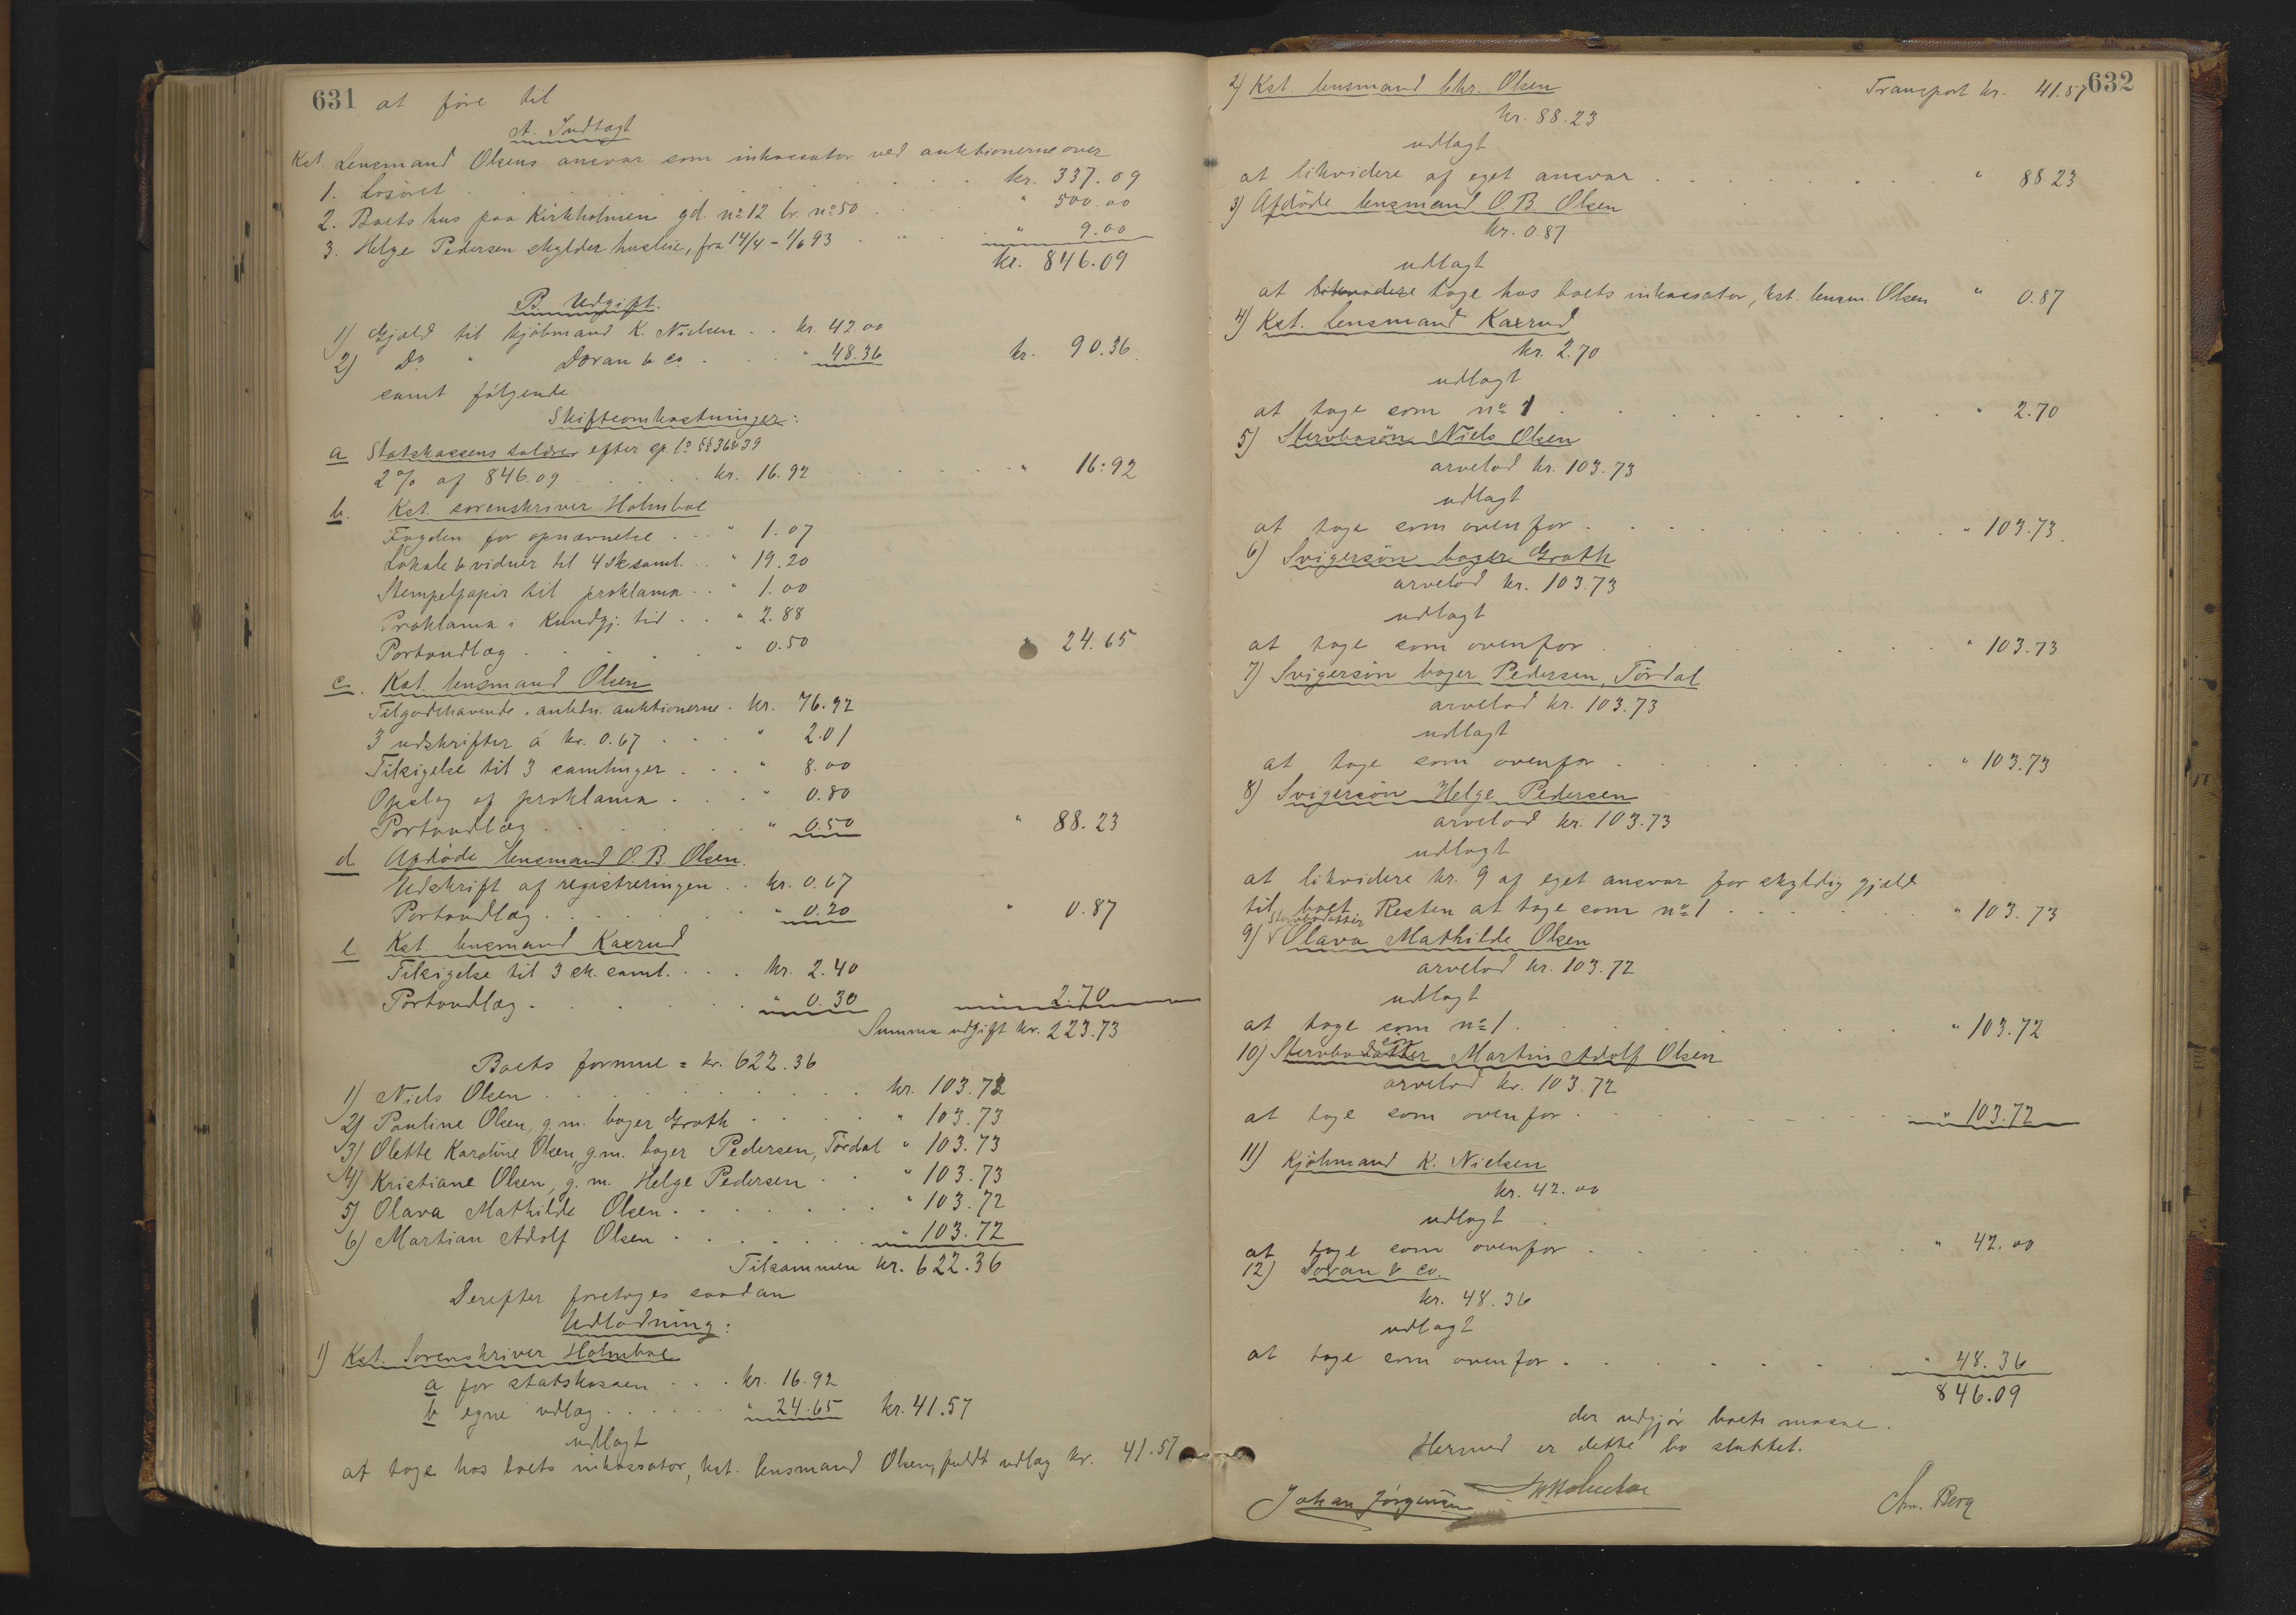 631 at före til
A. Indtægt
Kst. Lensmand Olsens ansvar som inkassator ved auktionerne over
1. Løsöret . . . . . . . . kr. 337.09
2. Boets hus paa Kirkholmen gd. nº 12 br. nº 50 . . . " 500.00
3. Helge Pedersen skylder husleie, fra 14/4 - 1/6 93 . . . " 9.00
kr. 846.09
B. Udgift.
1) Gjæld til kjöbmand K. Nielsen . . kr. 42.00
2) Dº " Doran & Co. . . . " 48.36 kr. 90.36.
samt fölgende
Skifteomkostninger:
a Statskassens saldrer efter sp. l. §§ 36 & 39
2 % af 846.09 . . . . kr. 16.92 . . . . . " 16:92
b. Kst. sorenskriver Holmboe
Fogden for opnævnelse . . . " 1.07
Lokale & vidner til 4 sk saml. . . " 19.20
Stempelpapir til proklama . . " 1.00
Proklama i Kundgj. tid . . " 2.88
Portoudlæg . . . . . " 0.50 " 24.65
c. Kst. lensmand Olsen
Tilgodehavende . anledn. auktionerne . kr. 76.92
3 udskrifter á kr. 0.67 . . . " 2.01
Tilsigelse til 3 samlinger . . . " 8.00
Opslag af proklama . . . " 0.80
Portoudlæg . . . . . . " 0.50 " 88.23
d Afdöde lensmand O. B. Olsen.
Udskrift af registreringen . . kr. 0.67
Portoudlæg . . . . . . " 0.20 " 0.87
e Kst. lensmand Kaxrud
Tilsigelse til 3 sk. saml. . . . kr. 2.40
Portoudlæg . . . . . . " 0.30 2.70
Summa udgift kr. 223.73
Boets formue = kr. 622.36
1) Niels Olsen . . . . . . . . kr. 103.73
2) Pauline Olsen, g. m. bager Groth . . . . " 103.73
3) Olette Karoline Olsen, g. m. bager Pedersen, Tördal " 103.73
4) Kristiane Olsen, g. m. Helge Pedersen . . " 103.73
5) Olava Mathilde Olsen . . . . . . . " 103.72
6) Martian Adolf Olsen . . . . . . . " 103.72
Tilsammen kr. 622.36
Derefter foretoges saadan
Udlodning:
1) Kst. Sorenskriver Holmboe
a for statskassen . . . kr. 16.92
b egne udlæg . . . . . . " 24.65 kr. 41.57
udlagt
at tage hos boets inkassator, kst. lensmand Olsen, fuldt udlæg kr. 41.57
632
2) Kst. lensmand Chr. Olsen Transport kr. 41.57
kr. 88.23
udlagt
at likvidere af eget ansvar . . . . . . " 88 23
3) Afdöde lensmand O. B. Olsen
kr. 0.87
udlagt
at likvidere tage hos boets inkassator, kst. lensm. Olsen " 0.87
4) Kst. Lensmand Kaxrud
kr. 2.70
udlagt
at tage som nº 1 . . . . . . . . " 2.70
5) Stervbosön Niels Olsen
arvelod kr. 103.73
udlagt
at tage som ovenfor . . . . . . . . " 103.73.
6) Svigersön bager Groth
arvelod kr. 103.73
udlagt
at tage som ovenfor . . . . . . . " 103.73
7) Svigersön bager Pedersen, Tördal
arvelod kr. 103.73
udlagt
at tage som ovenfor . . . . . . . " 103.73
8) Svigersön Helge Pedersen
arvelod kr. 103.73
udlagt
at likvidere kr. 9 af eget ansvar for skyldig gjæld
til boet. Resten at tage som nº 1 . . . . . . " 103.73
Stervbodatter
9) Olava Mathilde Olsen
arvelod kr. 103.72
udlagt
at tage som nº 1 . . . . . . . . " 103.72
sön
10) Stervbodatter Martin Adolf Olsen
arvelod kr. 103.72
at tage som ovenfor . . . . . . . " 103.72
11) Kjöbmand K. Nielsen
kr. 42.00
udlagt
at tage som ovenfor . . . . . . . " 42.00
12) Doran & Co.
kr. 48.36
udlagt
at tage som ovenfor . . . . . . . " 48.36
846.09
der udgjör boets masse.
Hermed er dette bo sluttet.
Johan Jörgensen Holmboe Chr. Berg